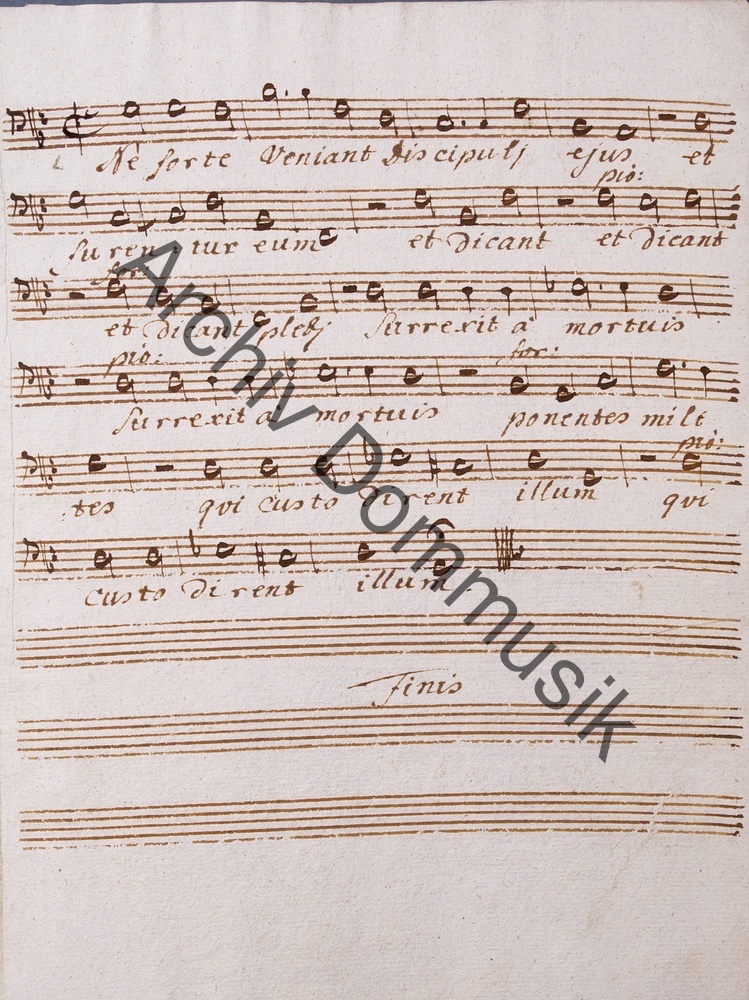 Ne forte Veniant Discipulj ejus et
pio:
furen tur eum et Dicant et dicant
for:
et Dicant plebj Surrexit a mortuis
pio: for:
Surrexit a mortuis ponentes mili
pio:
tes qvi custo dirent illum qvi
custo dirent illum.
Finis
Archiv Dommusik